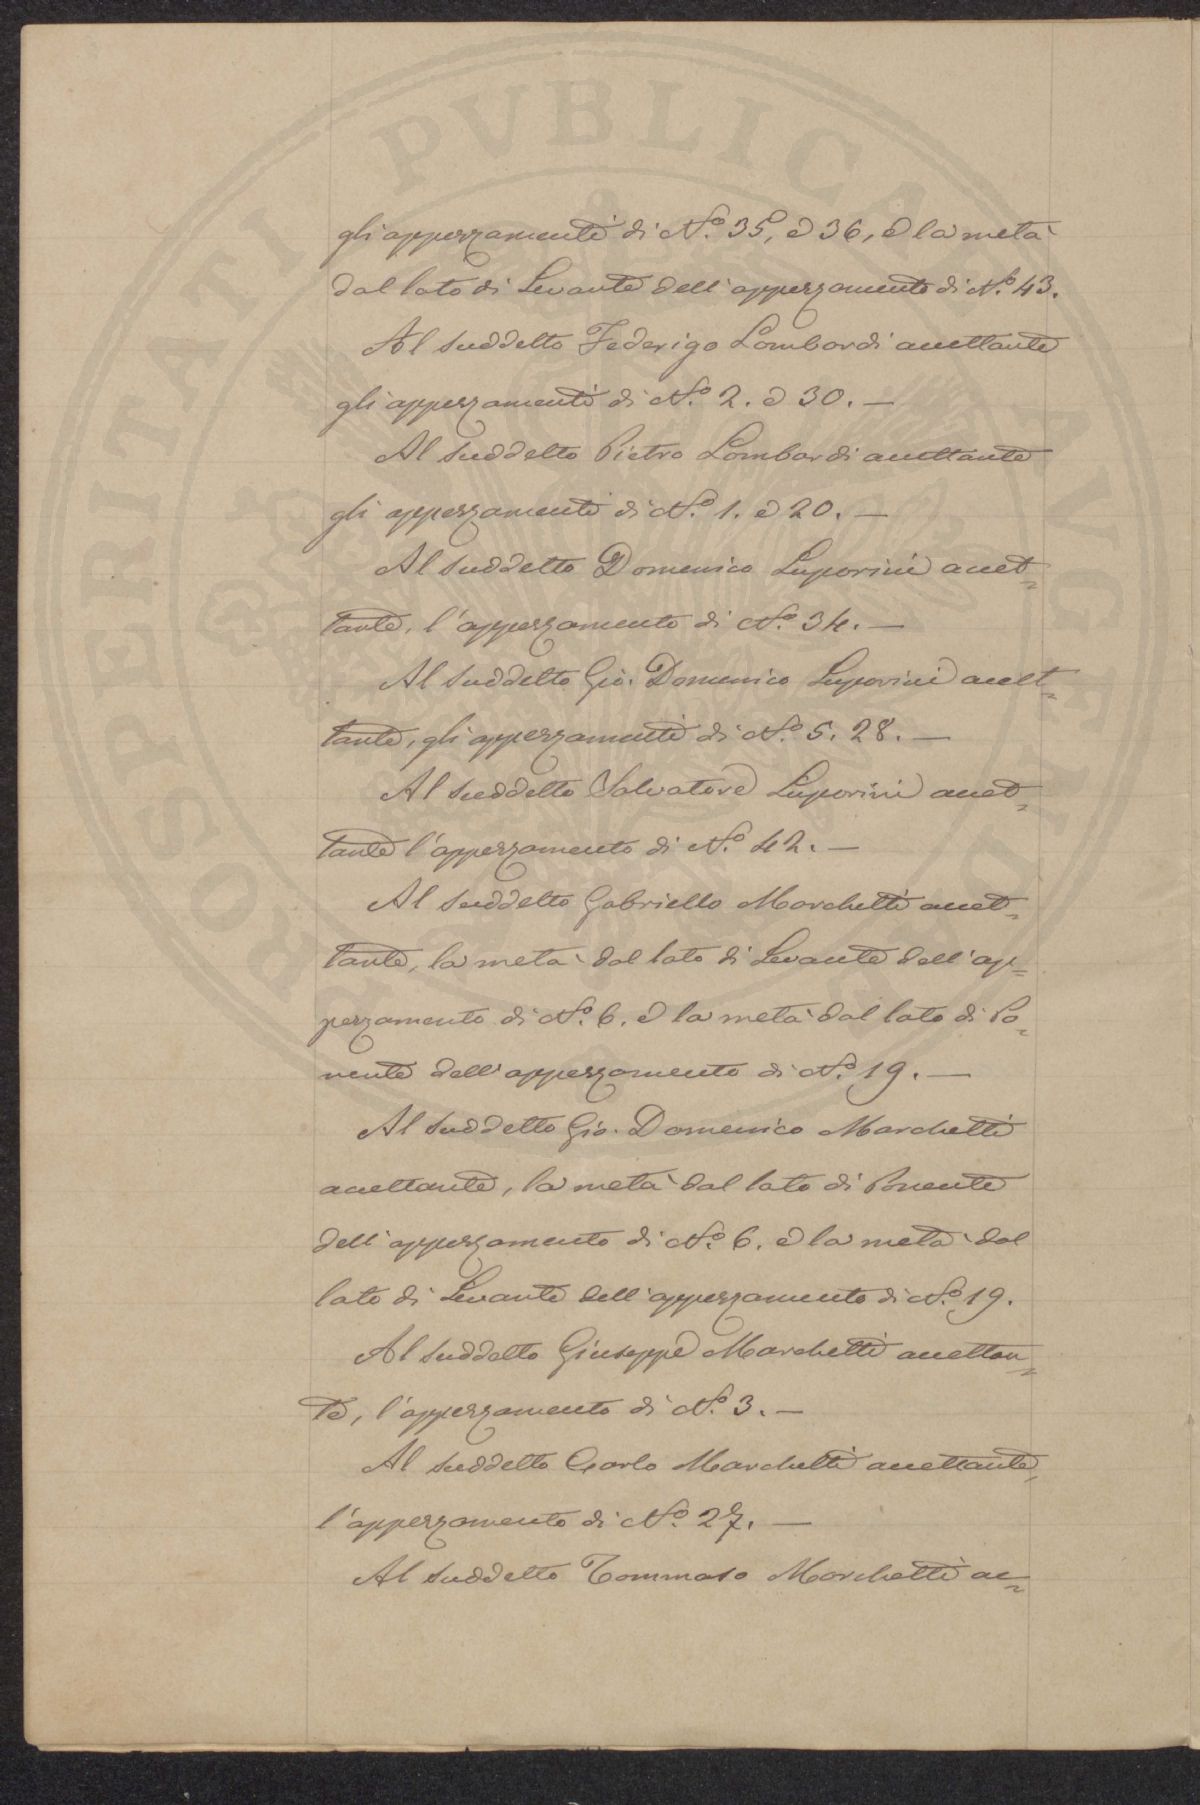 gli appezzamenti di N.º 35, e 36, e la metà
dal lato di Levante dell'appezzamento di N.º 43.
Al suddetto Federigo Lombardi accettante
gli appezzamenti di N.º 2. e 30. —
Al suddetto Pietro Lombardi accettante
gli appezzamenti di N.º 1. e 20. —
Al suddetto Domenico Luporini accet=
tante, l'appezzamento di N.º 34. —
Al suddetto Gio. Domenico Luporini accet=
tante, gli appezzamenti di N.º 5. 28. —
Al suddetto Salvatore Luporini accet=
tante l'appezzamento di N.º 42. —
Al suddetto Gabriello Marchetti accet=
tante, la metà dal lato di Levante dell'ap=
pezzamento di N.º 6. e la metà dal lato di Po=
nente dell'appezzamento di N.º 19. —
Al suddetto Gio. Domenico Marchetti
accettante, la metà dal lato di Ponente
dell'appezzamento di N.º 6. e la metà dal
lato di Levante dell'appezzamento di N.º 19.
Al suddetto Giuseppe Marchetti accettan=
te, l'appezzamento di N.º 3. —
Al suddetto Carlo Marchetti accettante,
l'appezzamento di N.º 27. —
Al suddetto Tommaso Marchetti ac=
PROSPERITATI PVBLICAE AVGENDAE